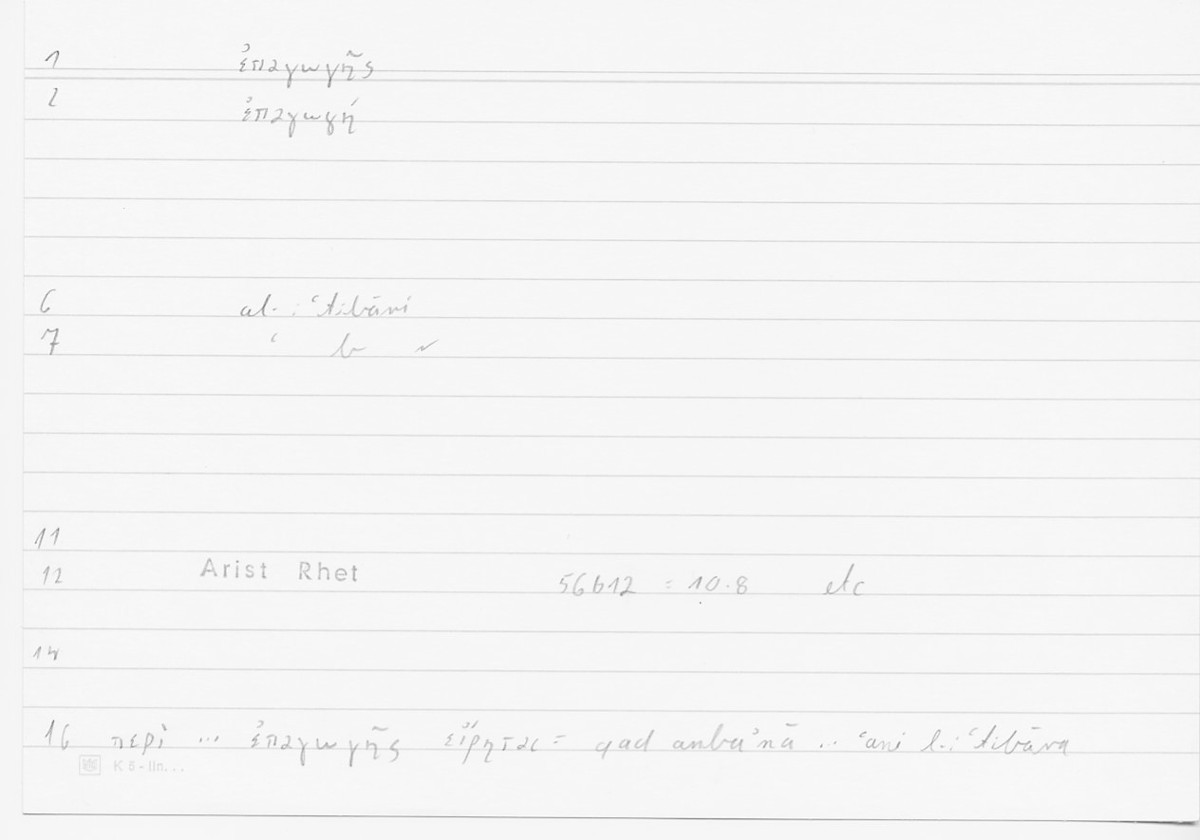 1 ἐπαγωγῆς
2 ἐπαγωγή
6 al-iʿtibāri
7 ʿ b r
11
12 Arist Rhet 56b12 = 10.8 etc
14
16 περὶ ... ἐπαγωγῆς εἴρηται = qad anbaʾnā .. ʿani l-iʿtibāra
K 5 - lin...